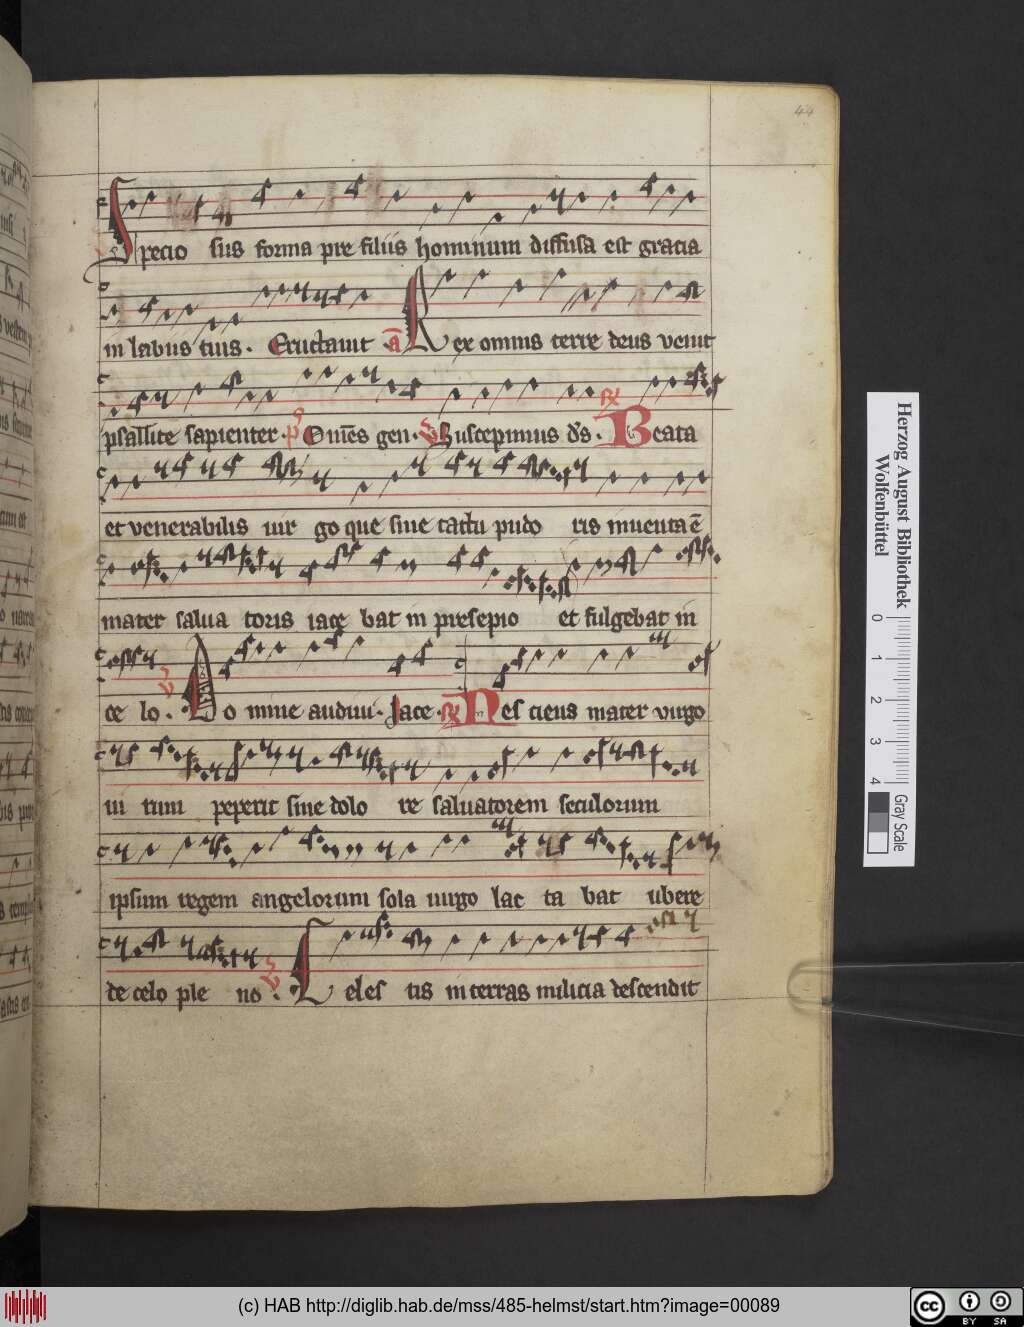 44
Specio sus forma pre filiis hominum diffusa est gracia
in labiis tuis. Eructauit a Rex omnis terre deus venit
psallite sapienter. p Om̄es gen. V Suscepimus ds. R Beata
et venerabilis uir go que sine tactu pudo ris inuenta ē
mater salua toris iace bat in presepio et fulgebat in
ce lo. V Do mine audiui. Iace. R Nes ciens mater virgo
ui rum peperit sine dolo re saluatorem seculorum
ipsum regem angelorum sola uirgo lac ta bat ubere
de celo ple no. V Celes tis in terras milicia descendit
Herzog August Bibliothek
Wolfenbüttel
0 1 2 3 4
Gray Scale
(c) HAB http://diglib.hab.de/mss/485-helmst/start.htm?image=00089
cc BY SA